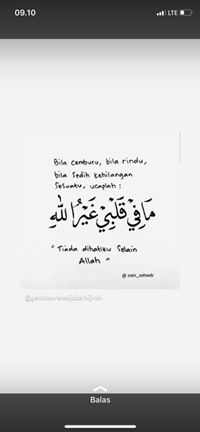 09.10
LTE
Bila cemburu, bila rindu,
bila sedih kehilangan
sesuatu, ucaplah :
مَا فِيْ قَلْبِيْ غَيْرُ اللّٰهِ
" Tiada dihatiku selain
Allah "
@ zain_zeheeb
Balas